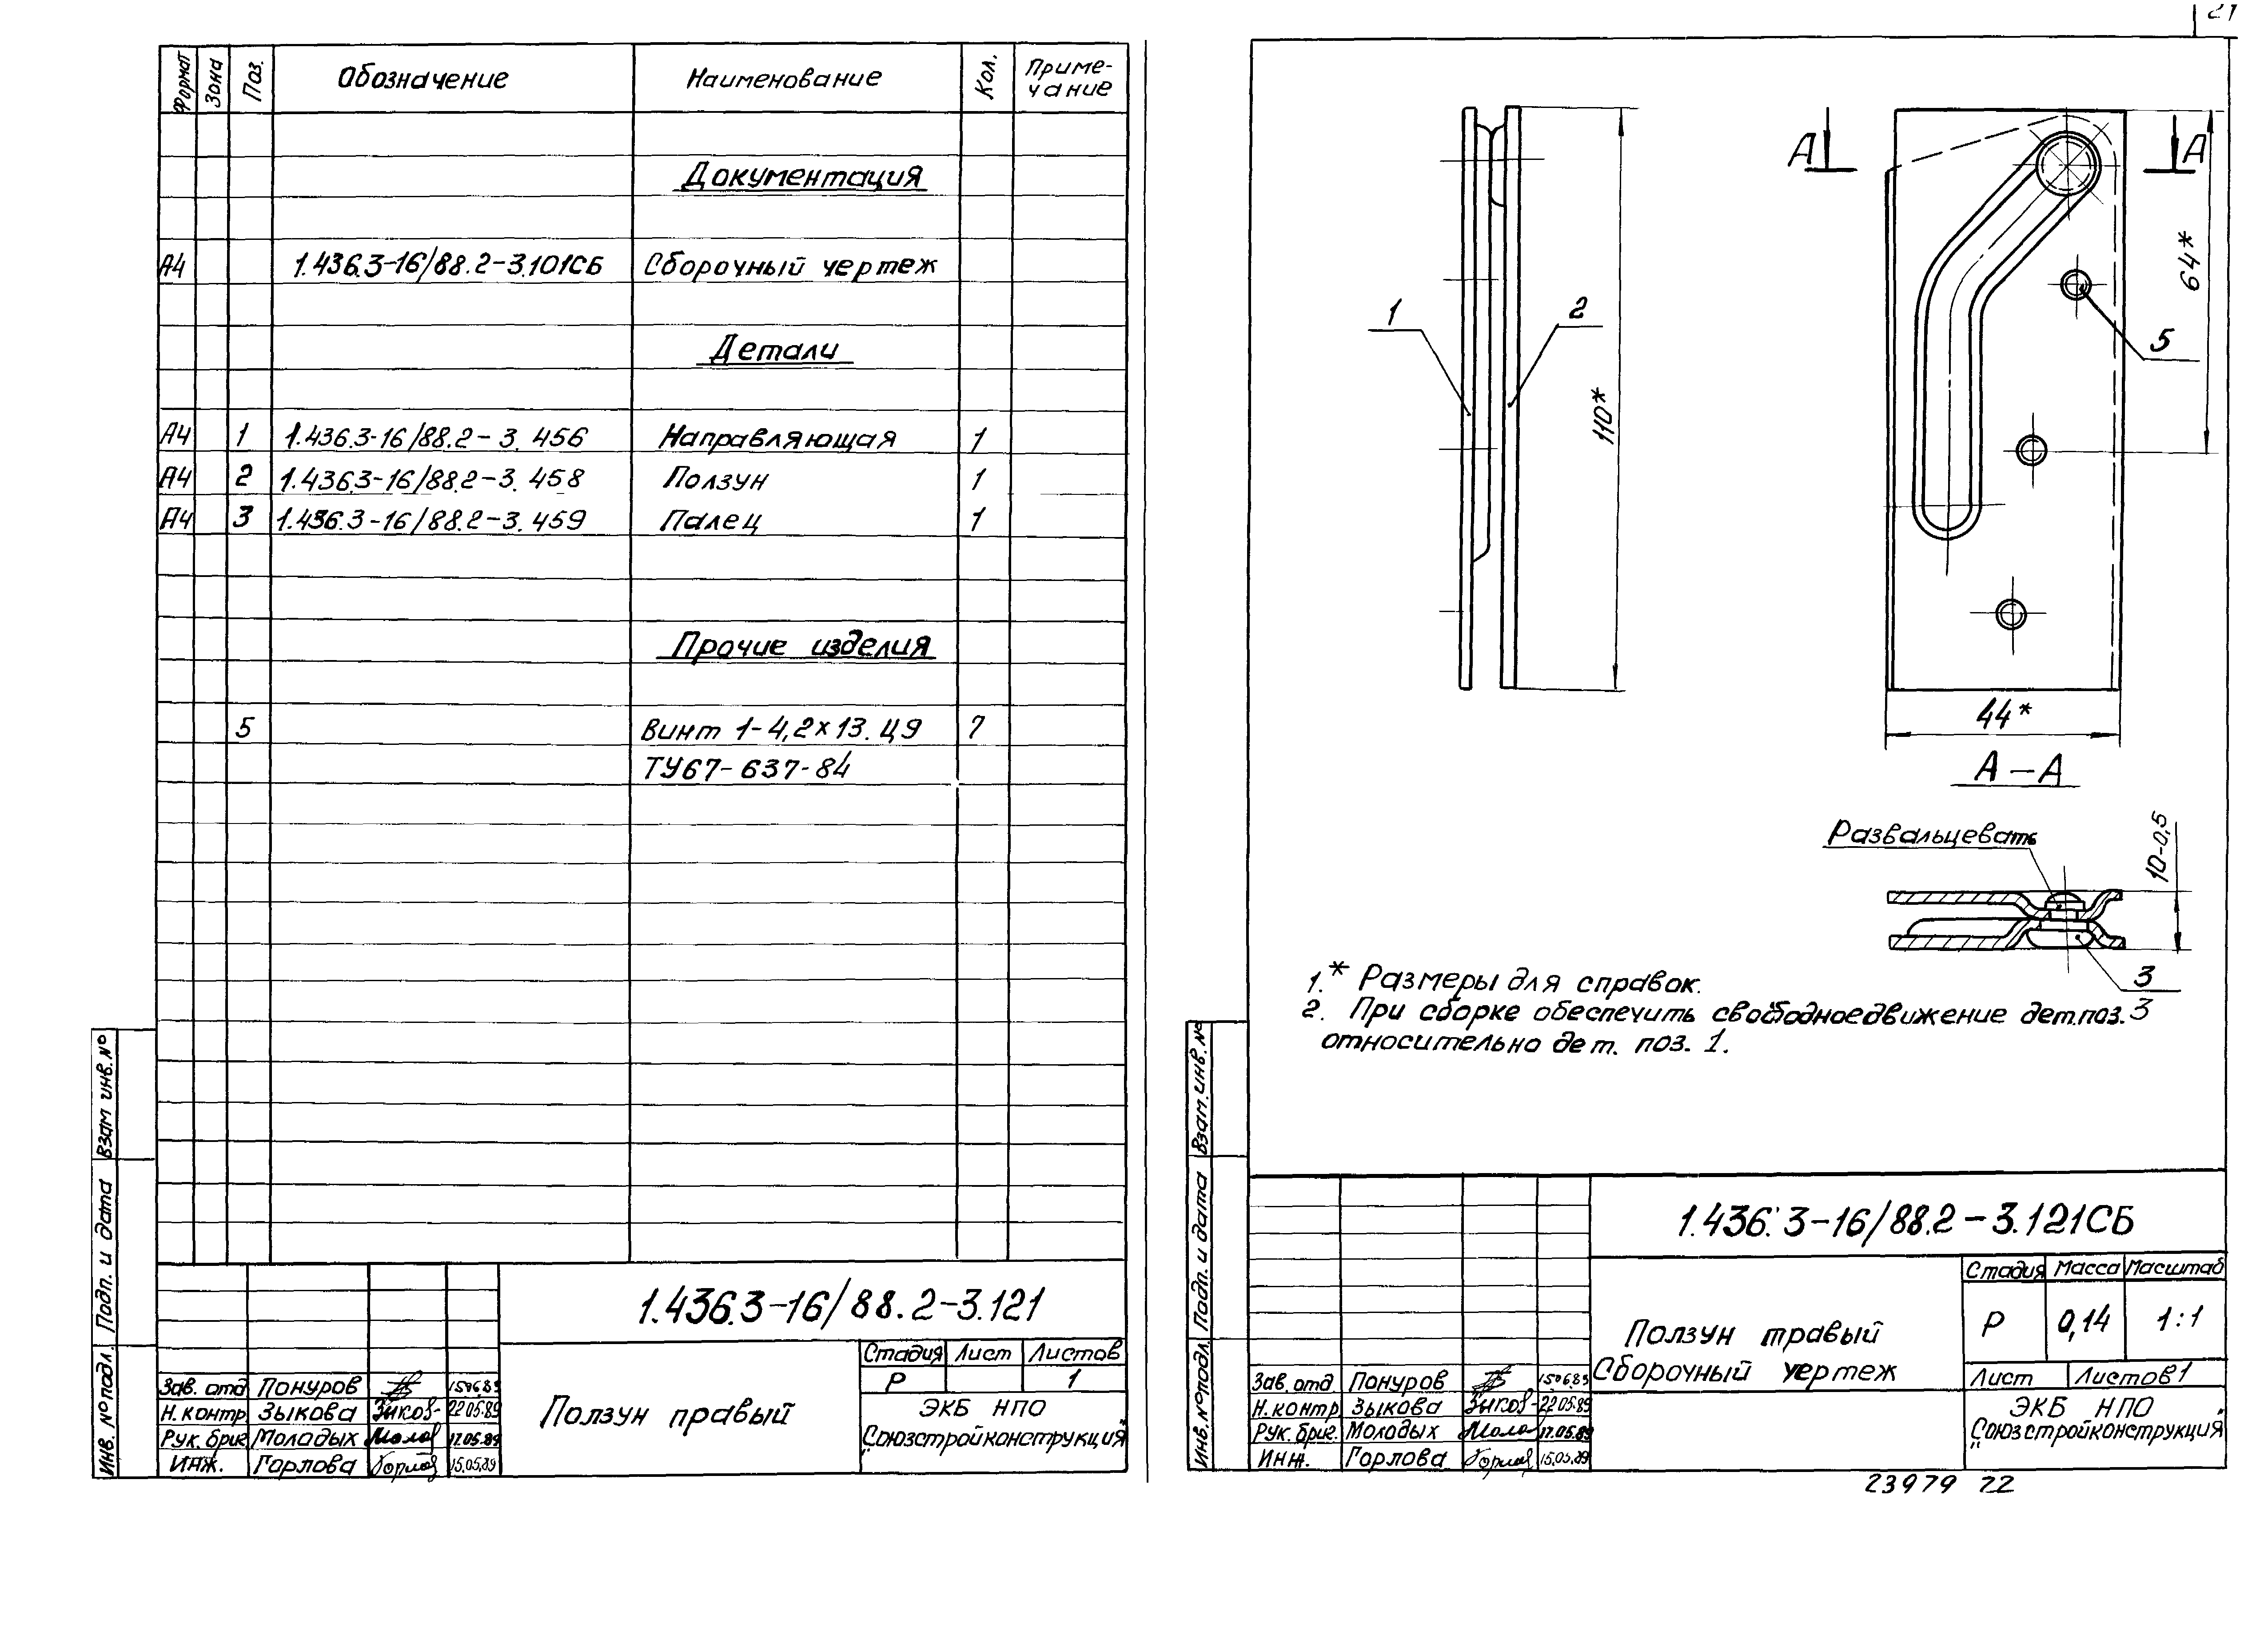 Формат Зона Поз. Обозначение Наименование Кол. Приме-
чание
Документация
А4 1.436.3-16/88.2-3.101СБ Сборочный чертеж
Детали
А4 1 1.436.3-16/88.2-3.456 Направляющая 1
А4 2 1.436.3-16/88.2-3.458 Ползун 1
А4 3 1.436.3-16/88.2-3.459 Палец 1
Прочие изделия
5 Винт 1-4,2х13.Ц9 7
ТУ67-637-84
Взам инв.№
Подп. и дата
Инв.№подл.
1.436.3-16/88.2-3.121
Ползун правый
Стадия Лист Листов
Р 1
ЭКБ НПО
"Союзстройконструкция"
Зав. отд Понуров 15.06.89
Н.контр Зыкова 22.05.89
Рук.бриг Моладых 17.05.89
Инж. Горлова 15.05.89
21
1
2
110*
А А
64*
5
44*
А-А
Развальцевать
10-0,5
3
1.* Размеры для справок.
2. При сборке обеспечить свободноедвижение дет.поз.3
относительно дет. поз. 1.
Взам.инв.№
Подп. и дата
Инв.№подл.
1.436.3-16/88.2-3.121СБ
Ползун правый
Сборочный чертеж
Стадия Масса Масштаб
Р 0,14 1:1
Лист Листов1
ЭКБ НПО
"Союзстройконструкция"
Зав.отд Понуров 15.06.89
Н.контр Зыкова 22.05.89
Рук.бриг. Моладых 17.05.89
Инж. Горлова 15.05.89
23979 22